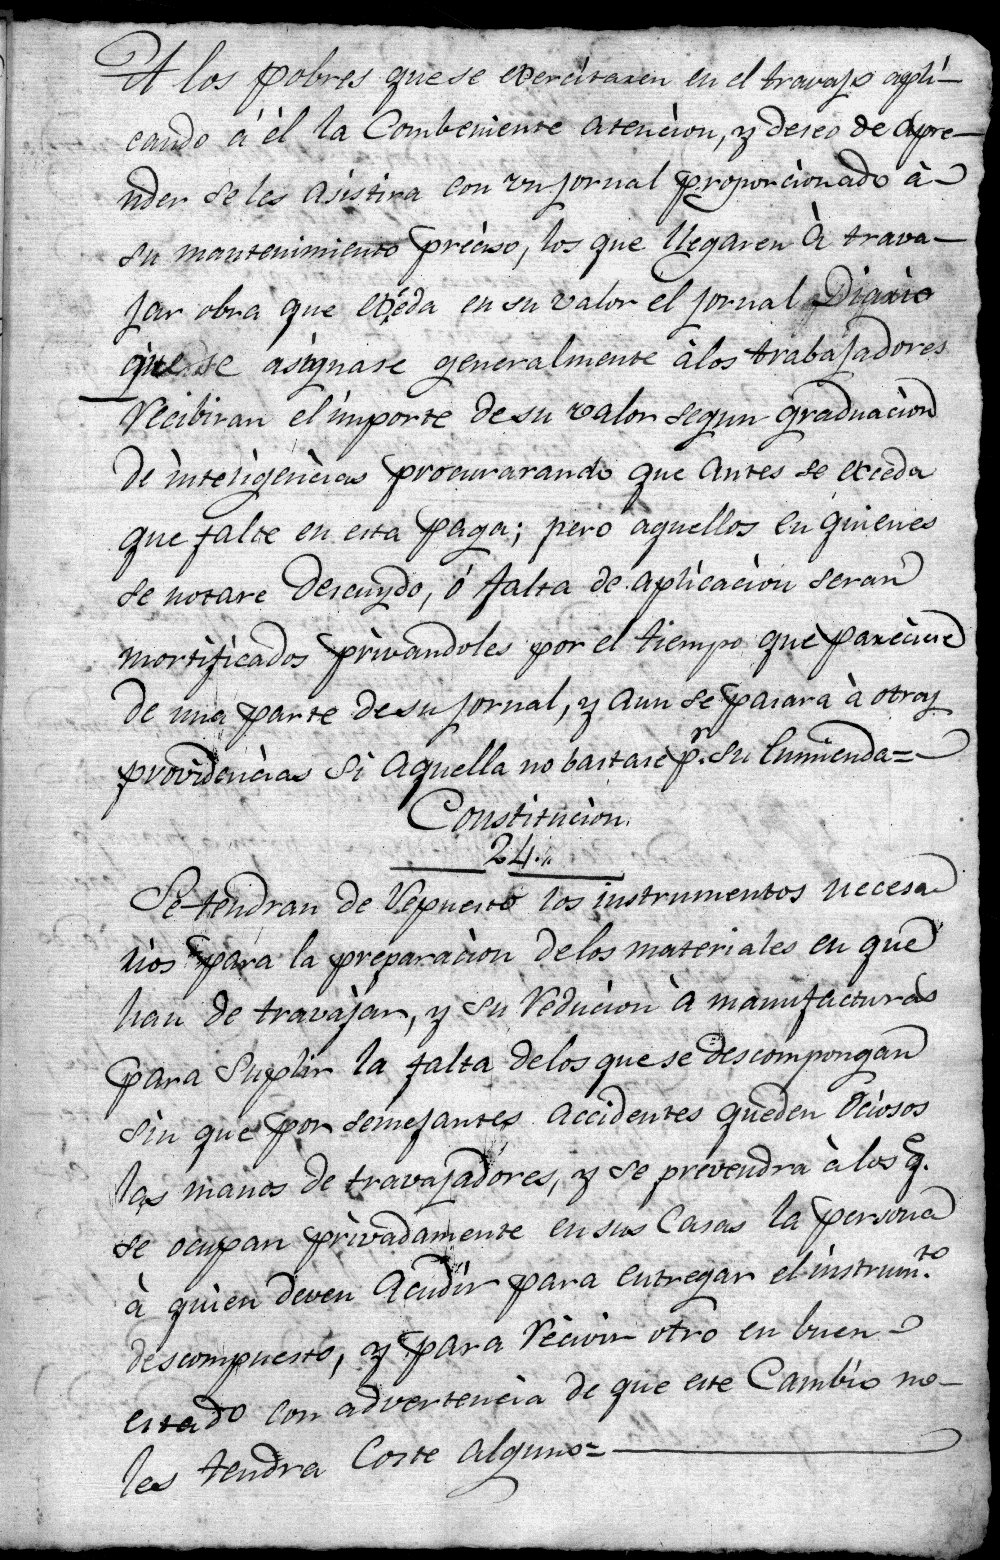 A los pobres que se exercitaren en el travajo apli-
cando á él la Combeniente atencion, y deseo de apre-
nder se les asistira con un jornal proporcionado à
su mantenimiento preciso, los que llegaren à trava-
jar obra que exéda en su valor el jornal Diario
que se asignase generalmente à los trabajadores
recibiran el importe de su valor segun graduacion
de inteligencias procurarando que antes se exceda
que falte en esta paga; pero aquellos en quienes
se notare descuydo, ó falta de aplicacion seran
mortificados privandoles por el tiempo que pareciere
de una parte de su jornal, y aun se pasara à otras
providencias si aquella no bastase pr. su enmienda=
Constitucion.
24.
Se tendran de repuesto los instrumentos necesa
rios para la preparacion de los materiales en que
han de travajar, y su reducion à manufacturas
para suplir la falta de los que se descompongan
sin que por semejantes accidentes queden ociosos
las manos de travajadores, y se prevendra à los q.e
se ocupan privadamente en sus casas la persona
à quien deven acudir para entregar el instrum.to
descompuesto, y para recivir otro en buen
estado con advertencia de que este Cambio no-
les tendra Coste alguno=